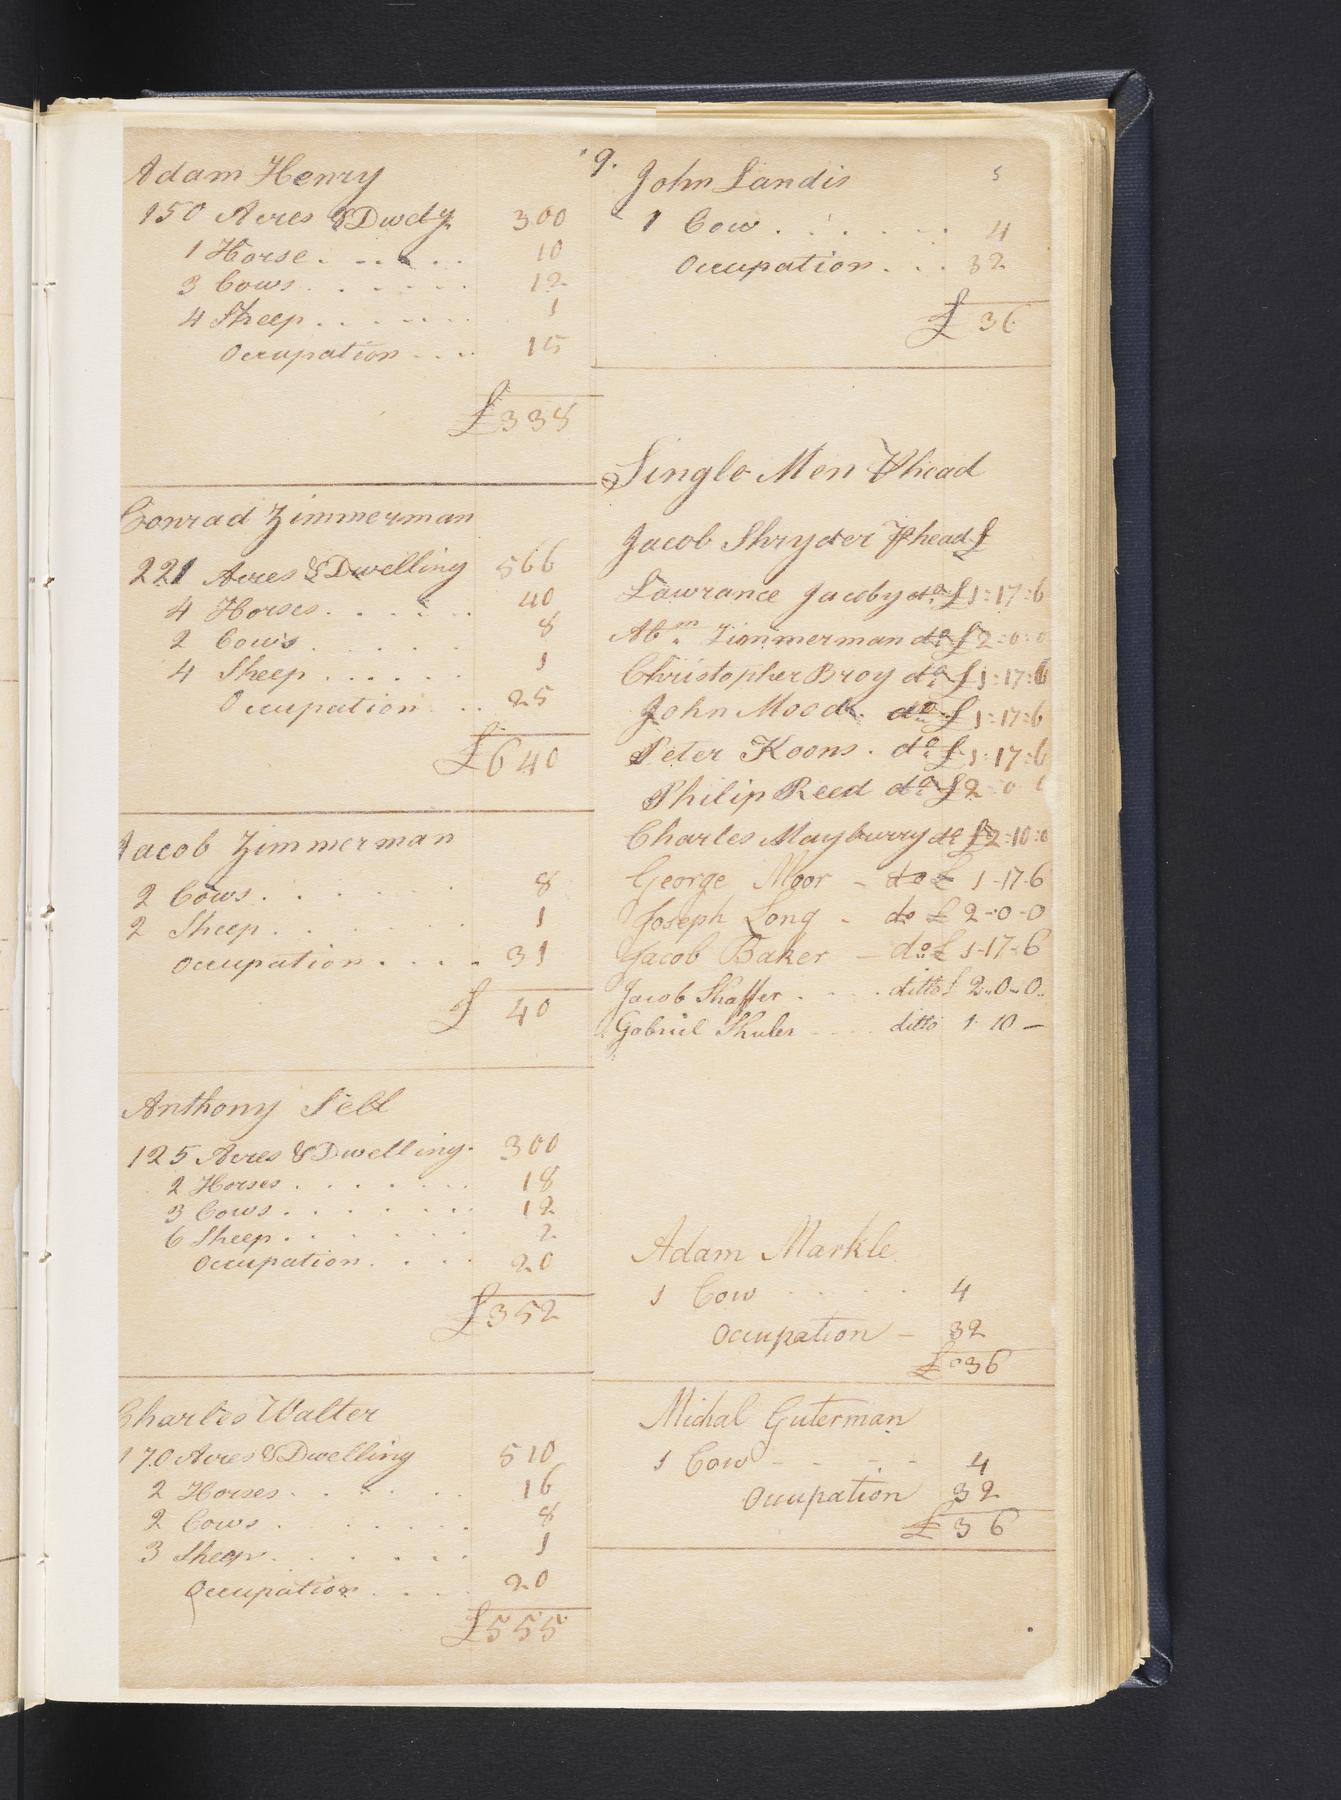 9.
Adam Henry
150 Acres & Dwdg 300
1 Horse 10
3 Cows 12
4 Sheep 1
Occupation 15
£338
Conrad Zimmerman
221 Acres & Dwelling 566
4 Horses 40
2 Cows 8
4 Sheep 1
Occupation 25
£640
Jacob Zimmerman
2 Cows 8
2 Sheep 1
Occupation 31
£ 40
Anthony
125 Acres & Dwelling 300
2 Horses 18
3 Cows 12
6 Sheep 2
Occupation 20
£352
Charles Walter
170 Acres & Dwelling 510
2 Horses 16
2 Cows 8
3 Sheep 1
Occupation 20
£555
John Landis
1 Cow 4
Occupation 32
£ 36
Single Men ⅌ head
Jacob Shryder ⅌ head £
Lawrance Jacoby do £1:17:6
Abm Zimmerman do £2:0:0
Christopher Broy do £1:17:6
John Mood do £1:17:6
Peter Koons do £1:17:6
Philip Reed do £2 0
Charles Mayburry do £2:10:0
George Moor - do £ 1-17-6
Joseph Long - do £ 2-0-0
Jacob Baker - do £ 1-17-6
Jacob Shaffer ditto £ 2..0..0..
Gabriel Shuler ditto 1 10 —
Adam Markle
1 Cow 4
Occupation - 32
£ 36
Michal Guterman
1 Cow - - - - 4
Occupation 32
£ 36